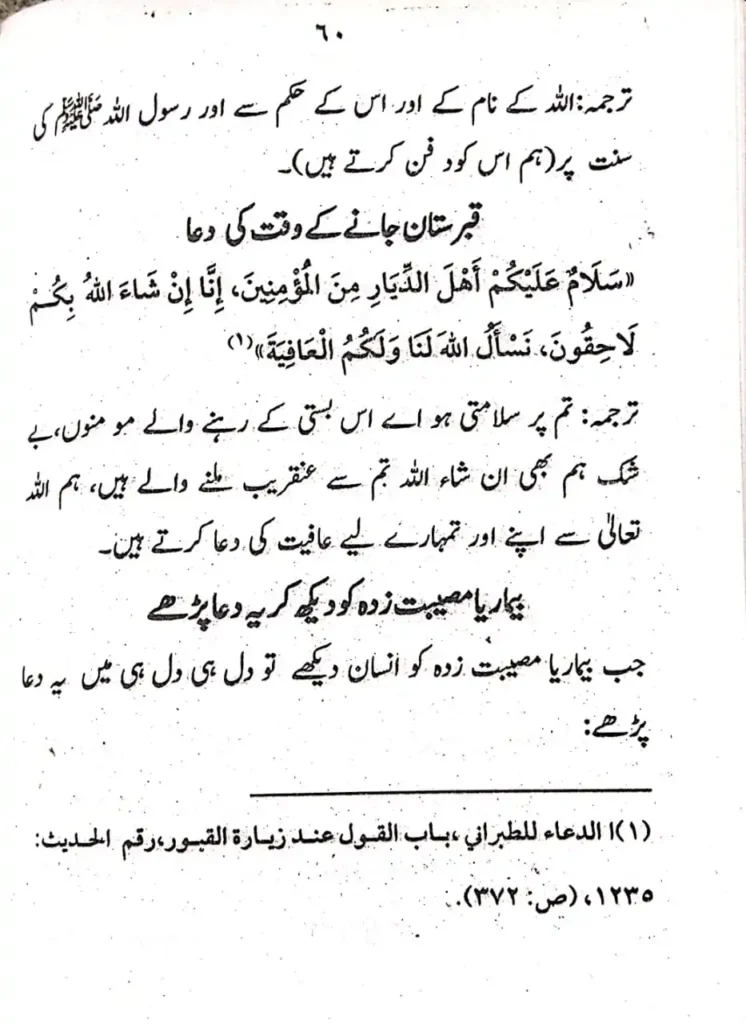 ٦٠
ترجمہ:اللہ کے نام کے اور اس کے حکم سے اور رسول اللہ ﷺ کی
سنت پر(ہم اس کود فن کرتے ہیں)۔
قبرستان جانے کے وقت کی دعا
«سَلَامٌ عَلَيْكُمْ أَهْلَ الدِّيَارِ مِنَ الْمُؤْمِنِينَ، إِنَّا إِنْ شَاءَ اللهُ بِكُمْ
لَاحِقُونَ، نَسْأَلُ اللهَ لَنَا وَلَكُمُ الْعَافِيَةَ»(١)
ترجمہ: تم پر سلامتی ہو اے اس بستی کے رہنے والے مو منوں،بے
شک ہم بھی ان شاء اللہ تم سے عنقریب ملنے والے ہیں، ہم اللہ
تعالیٰ سے اپنے اور تمہارے لیے عافیت کی دعا کرتے ہیں۔
بیمار یا مصیبت زدہ کو دیکھ کر یہ دعا پڑھے
جب بیمار یا مصیبت زدہ کو انسان دیکھے تو دل ہی دل ہی میں یہ دعا
پڑھے:
(١)ا الدعاء للطبراني ،باب القول عند زيارة القبور،رقم الحديث:
١٢٣٥، (ص: ٣٧٢).